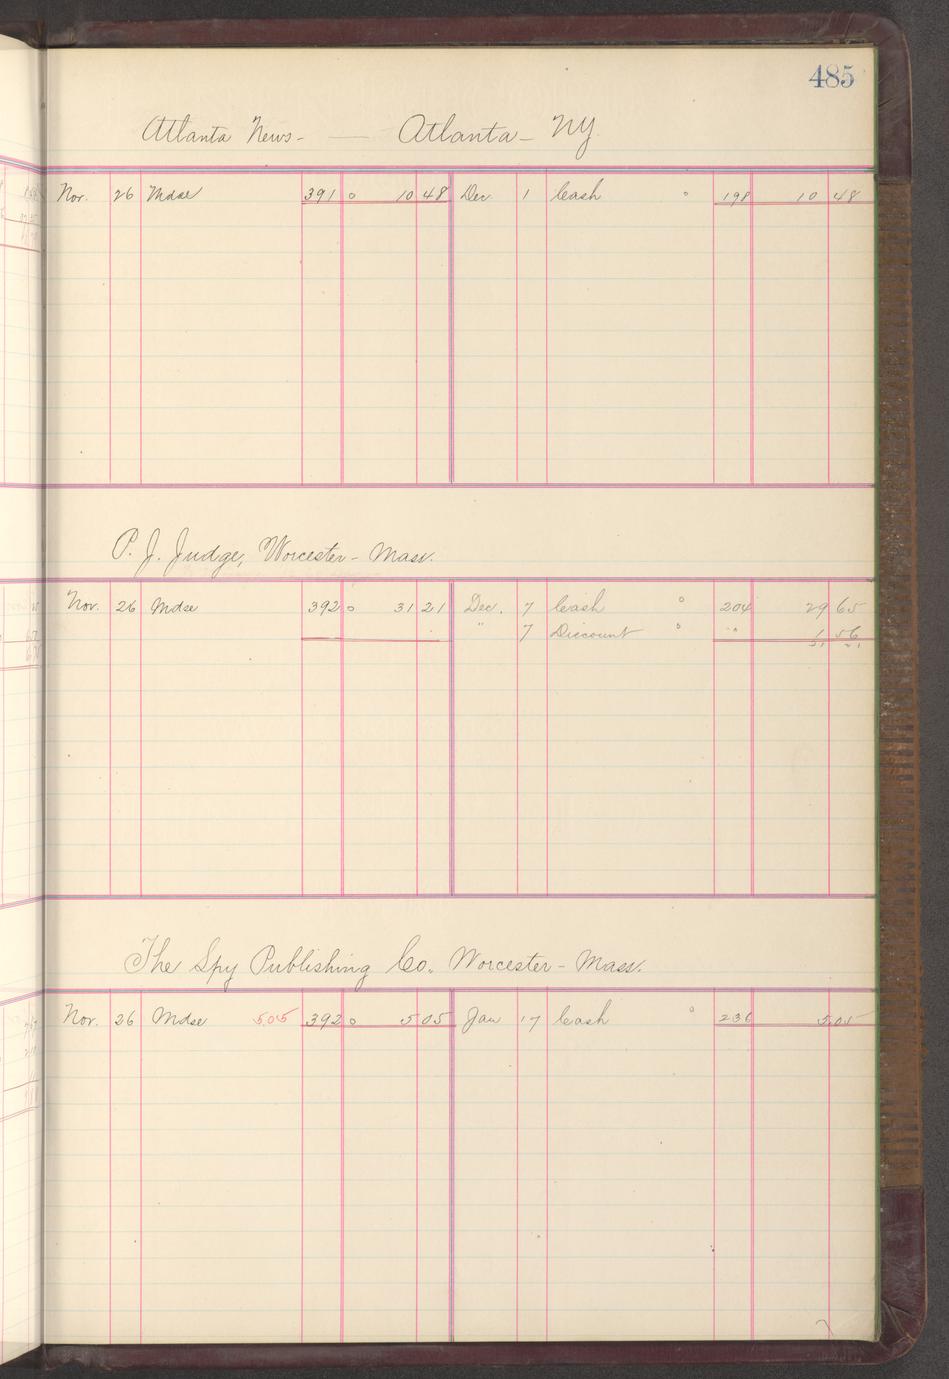 485
Atlanta News - — Atlanta - NY.
Nov. 26 Mdse 391 o 10 48 Dec. 1 Cash o 198 10 48
P. J. Judge, Worcester - Mass.
Nov. 26 Mdse 392 o 31 21 Dec. 7 Cash o 204 29 65
" 7 Discount o " 1 56
31 21
The Spy Publishing Co. Worcester - Mass.
Nov. 26 Mdse 5.05 392 o 5 05 Jan 17 Cash o 236 5.05